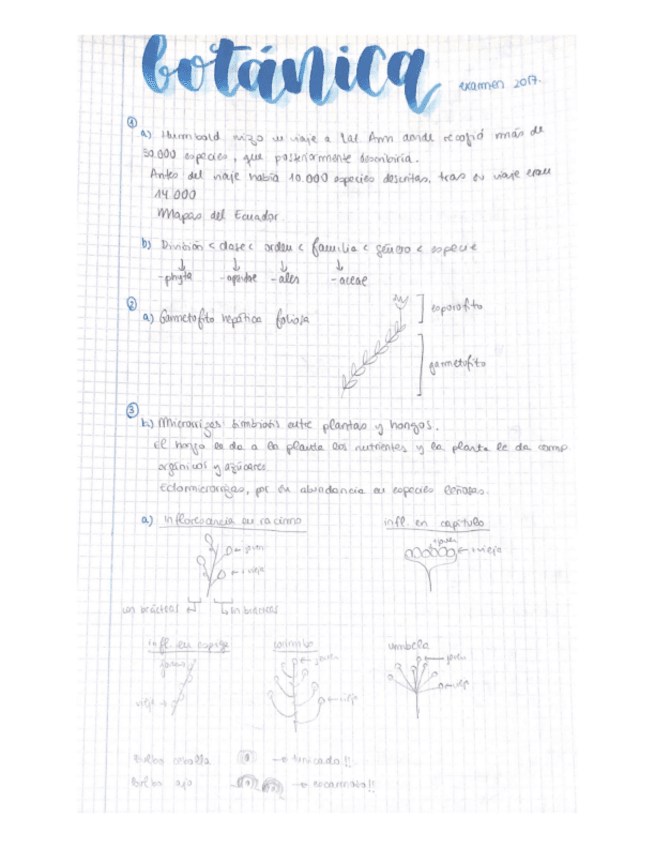 botánica
examen 2017.
① a) Humbold hizo un viaje a Lat Am donde recogió más de
30.000 especies, que posteriormente describiría.
Antes del viaje había 10.000 especies descritas, tras su viaje eran
14.000
Mapas del Ecuador.
b) División < clase < orden < familia < género < especie
-phyta -opsidae -ales -aceae
② a) Gametofito hepática foliosa
esporofito
gametofito
③ b) Micorrizas simbiosis entre plantas y hongos.
El hongo le da a la planta los nutrientes y la planta le da comp
orgánicos y azúcares.
Ectomicorrizas, por su abundancia en especies leñosas.
a) Inflorescencia en racimo infl. en capítulo
joven
joven
viejo
viejo
con brácteas sin brácteas
infl. en espiga corimbo umbela
joven joven joven
viejo viejo viejo
Bulbo cebolla → tunicado!!
Bulbo ajo → escamoso!!